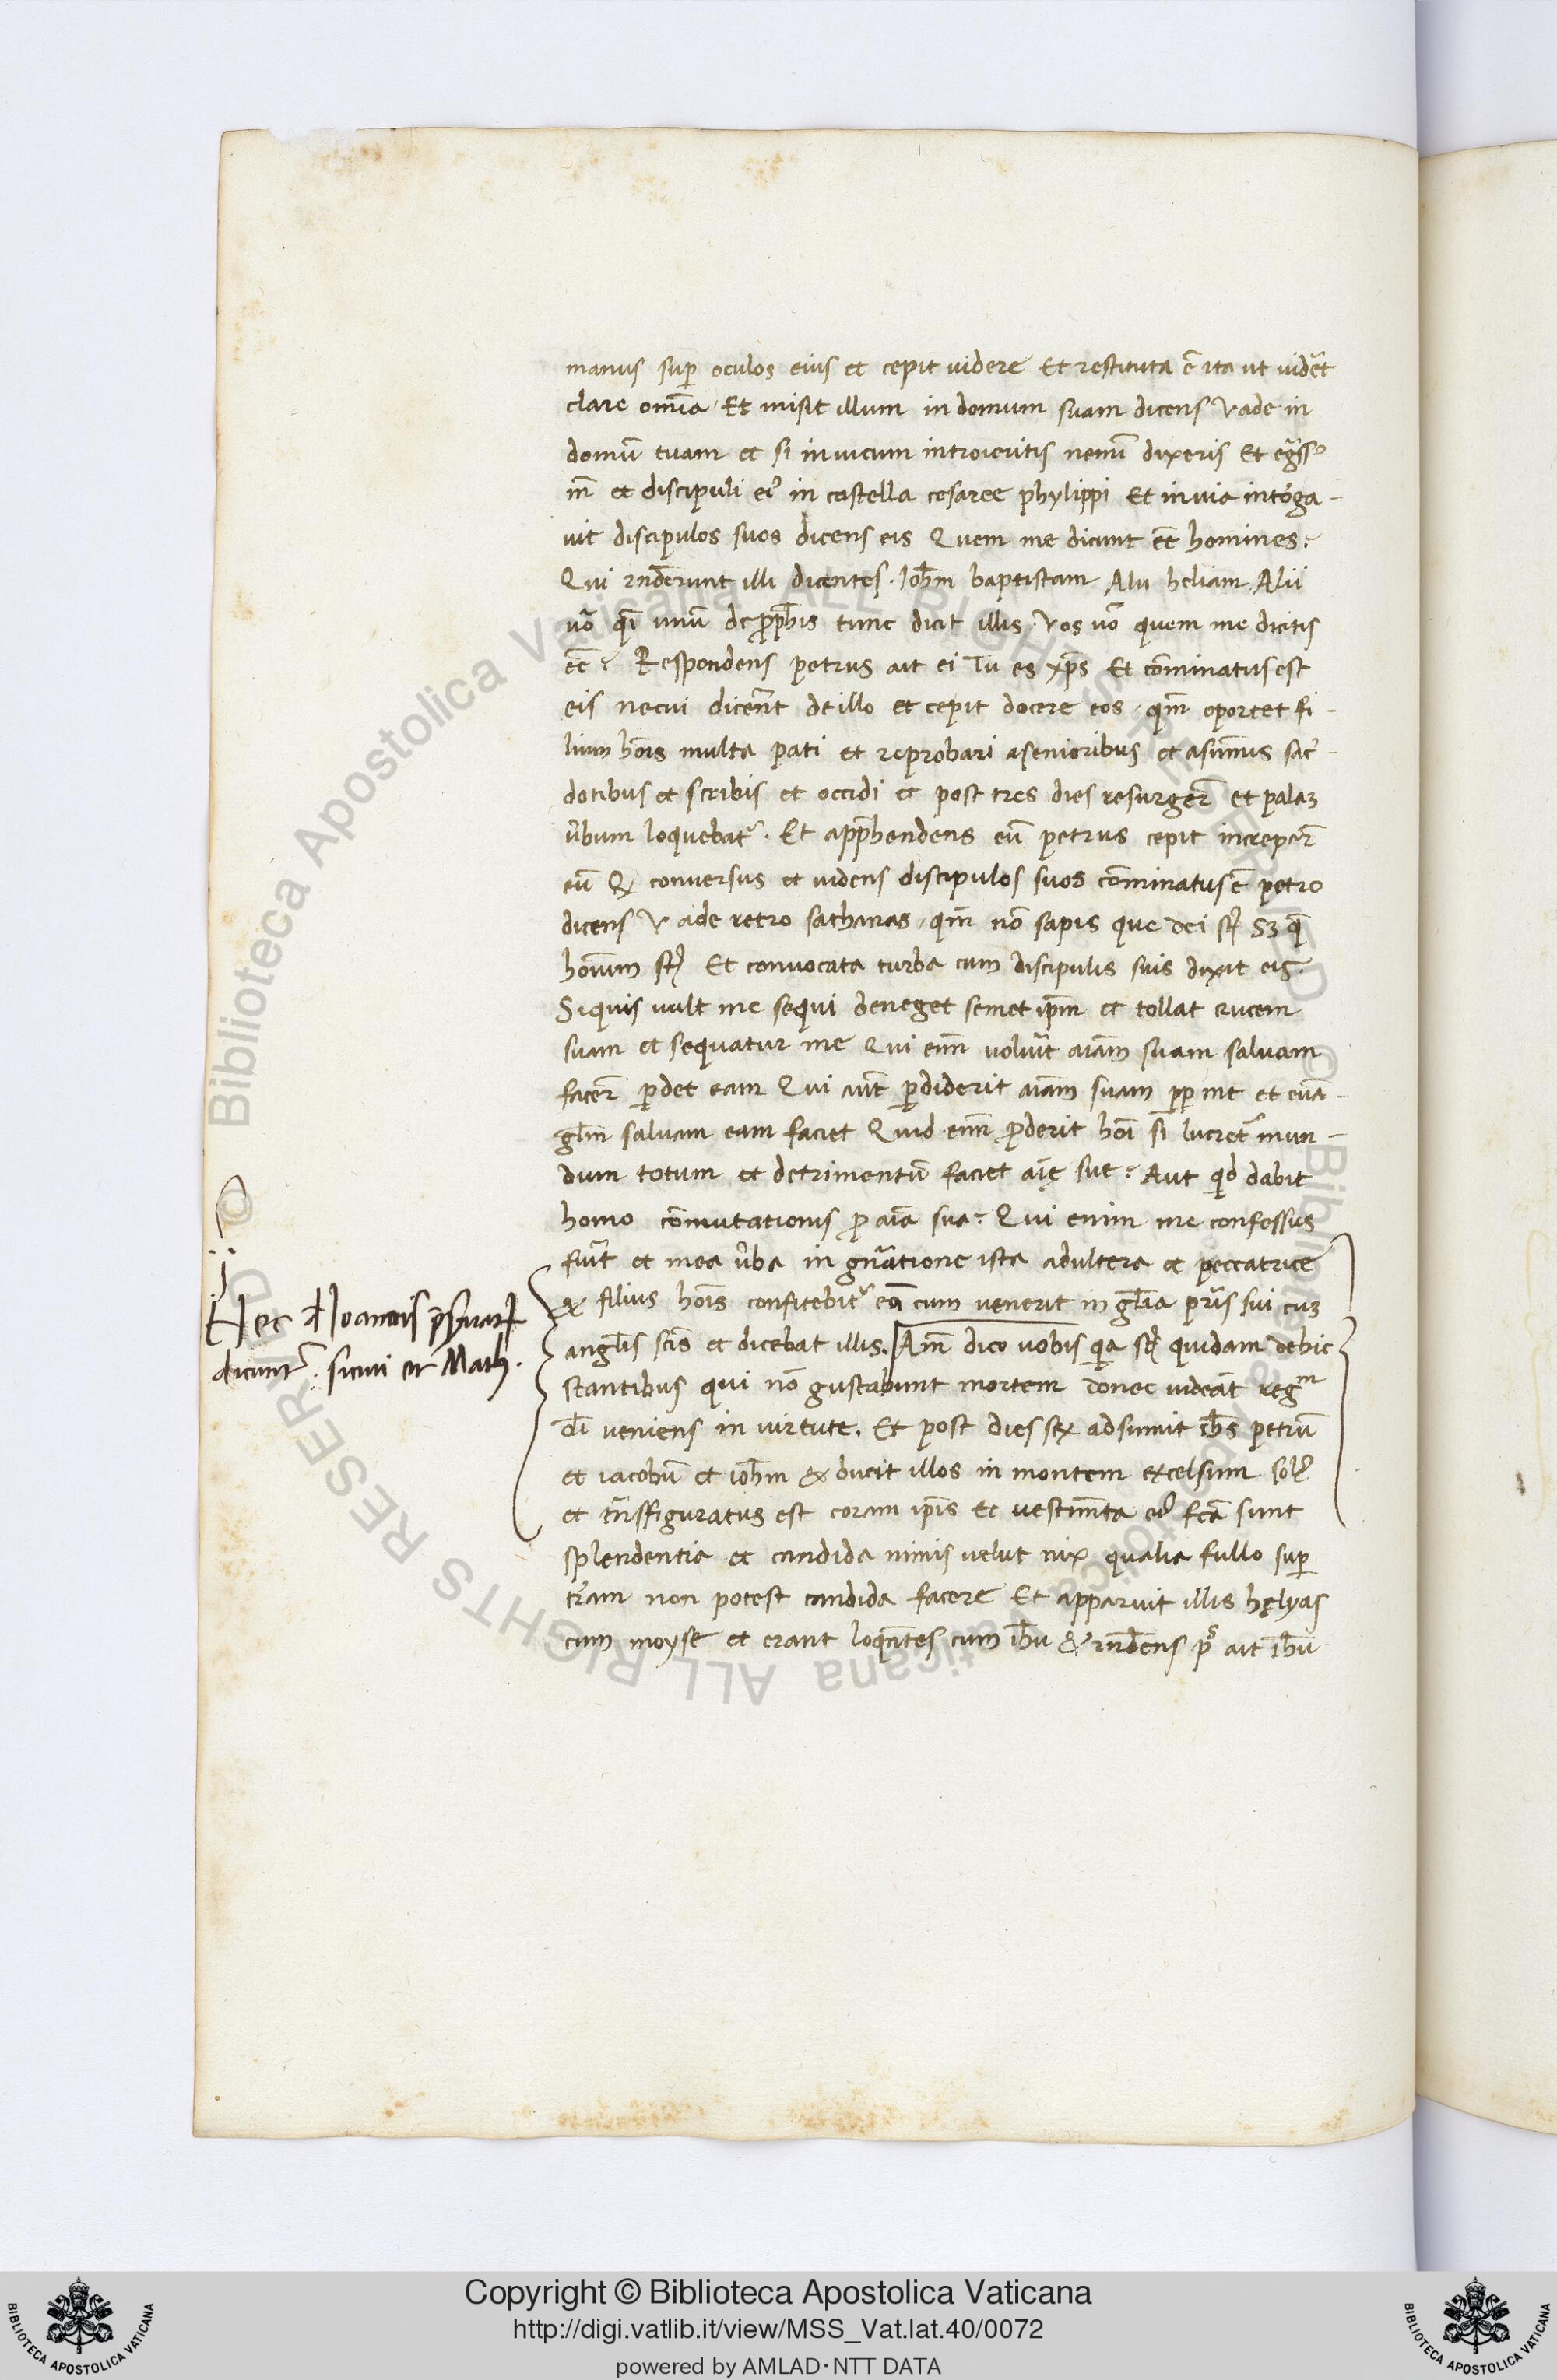 manus suꝑ oculos eius et cepit uidere Et restituta ē ita ut uidēt
clare om̄ia Et misit illum in domum suam dicens Vade in
domū tuam et si in uicum introieritis nemī dixeris Et egͣss
et discipuli ei in castella cesaree phylippi Et in uia intōga-
uit discipulos suos dicens eis Quem me dicunt eē homines?
Qui rn̄derunt illi dicentes Ioh̄m baptistam Alii heliam Alii
uō qī unū de ꝓph̄is tunc dicit illis Vos uō quem me dicitis
eē? Respondens petrus ait ei Tu es xp̄s Et cōminatus est
eis ne cui dicerēt de illo et cepit docere eos qm̄ oportet fi-
lium hōis multa pati et reprobari a senioribus et a sūmus sac̄-
dotibus et scribis et occidi et post tres dies resurger̄ et palaꝫ
ūbum loquebat᷑. Et app̄hendens eū petrus cepit increpar̄
eū Qꝫ conuersus et uidens discipulos suos cōminatus ē petro
dicens Vade retro sathanas qm̄ nō sapis que dei st̄ Sꝫ q̄
hoīum st̄ Et conuocata turba cum discipulis suis dixit eis
Si quis uult me sequi deneget semet ip̄m et tollat crucem
suam et sequatur me Qui enī uoluīt aīam suam saluam
facer̄ ꝑdet eam Qui aūt ꝑdiderit aīam suam ꝓp me et eua-
gl̄m saluam eam faciet Quid enī ꝓderit hoī si lucret᷑ mun-
dum totum et detrimentū faciet aīę sue? Aut qͥd dabit
homo cōmutationis ꝓ aīa sua? Qui enim me confessus
fuīt et mea ūba in gn̄atione ista adultera et peccatrice
& filius hōis confitebit᷑ eū cum uenerit in gl̄ia pr̄is sui cuꝫ
angl̄is sc̄is et dicebat illis. Am̄ dico uobis qͥa st̄ quidam de hic
stantibus qui nō gustabunt mortem donec uideāt regᵐ
dī ueniens in uirtute. Et post dies sex adsumit ih̄s petrū
et iacobū et ioh̄m & ducit illos in montem excelsum sol
et tn̄sfiguratus est coram ip̄is Et uestim̄ta ei fc̄a sunt
splendentia et candida nimis uelut nix qualia fullo suꝑ
t̄ram non potest candida facere Et apparuit illis hęlyas
cum moyse et erant loqn̄tes cum ih̄u & rn̄dens p͛ ait ih̄u
Hec
dicunt᷑. sicuti et Math.
Copyright © Biblioteca Apostolica Vaticana
http://digi.vatlib.it/view/MSS_Vat.lat.40/0072
powered by AMLAD·NTT DATA
BIBLIOTECA APOSTOLICA VATICANA
BIBLIOTECA APOSTOLICA VATICANA
© Biblioteca Apostolica Vaticana ALL RIGHTS RESERVED
© Biblioteca Apostolica Vaticana ALL RIGHTS RESERVED